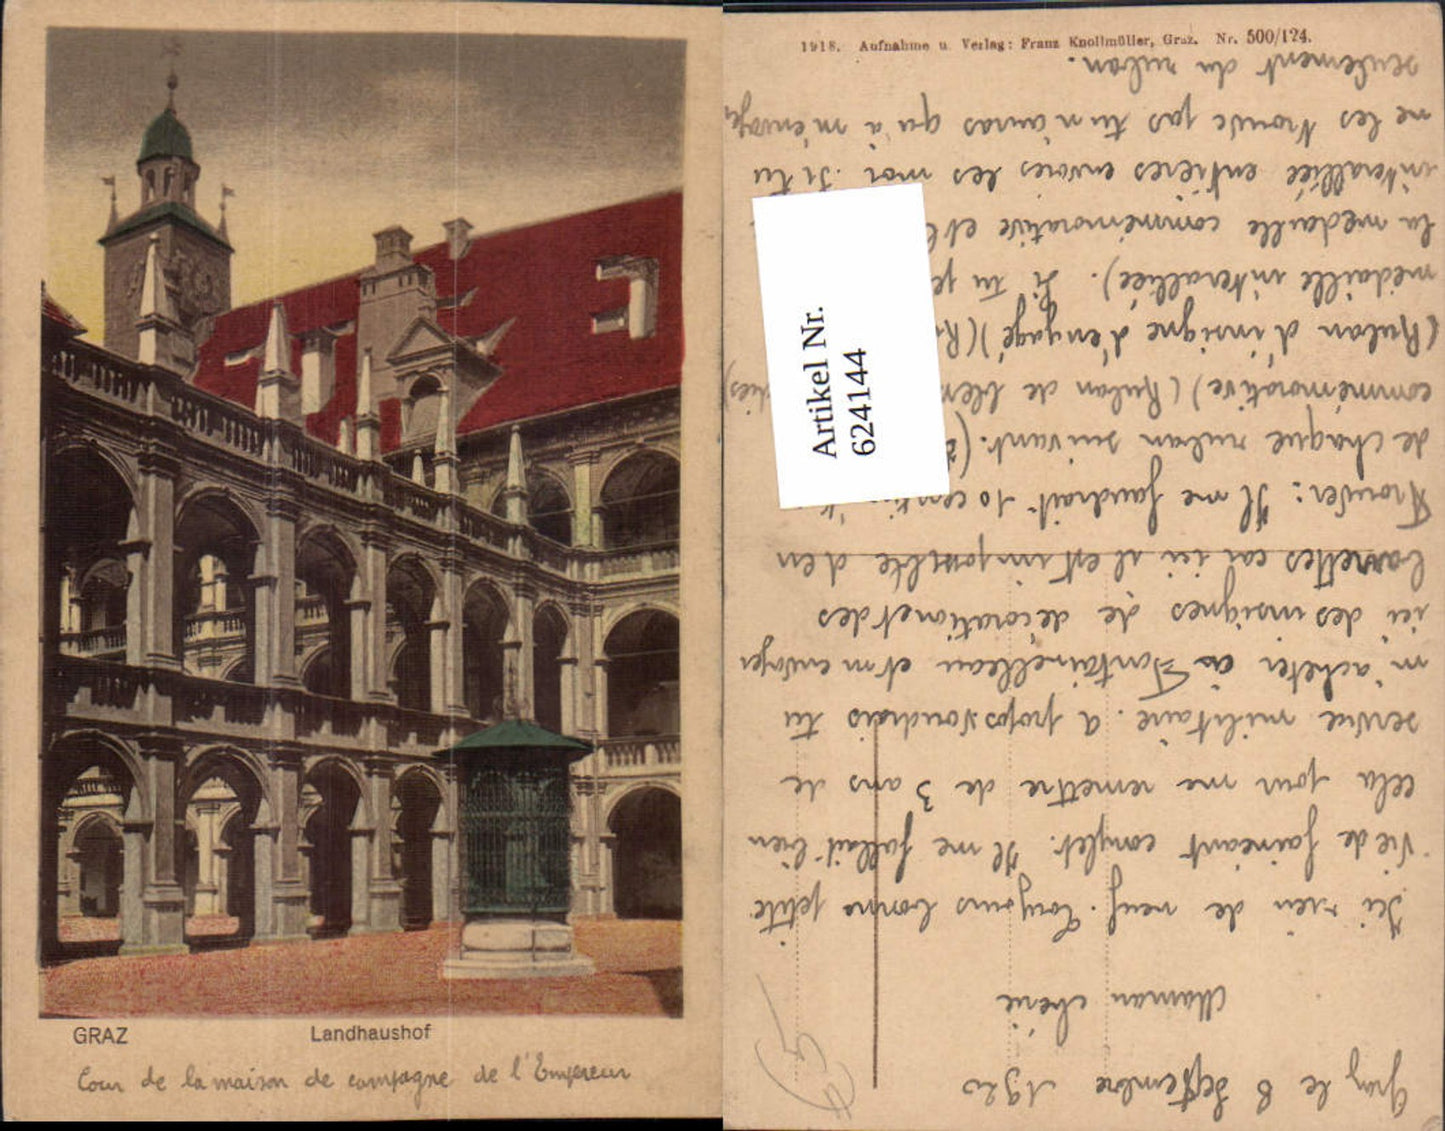 GRAZ
Landhaushof
Cour de la maison de campagne de l'Empereur
1918. Aufnahme u. Verlag: Franz Knollmüller, Graz. Nr. 500/124.
Artikel Nr.
6241144
63
Graz le 8 Septembre 1920
Maman chérie
Ici rien de neuf. Toujours bonne petite
vie de fainéant complet. Il me fallait bien
cela pour me remettre de 3 ans de
service militaire. A propos voudrais tu
m'acheter à Fontainebleau et m'envoyer
ici des insignes de décoration et des
barrettes car ici il est impossible d'en
trouver: Il me faudrait 10 centim
de chaque ruban suivant. (
commémorative) (Ruban de bles
(Ruban d'insigne d'engagé) (Ru
médaille interalliée). Si tu
la médaille commémorative et
interalliée entières envoies les moi. Si tu
ne les trouve pas tu n'auras qu'à m'envoyer
seulement du ruban.